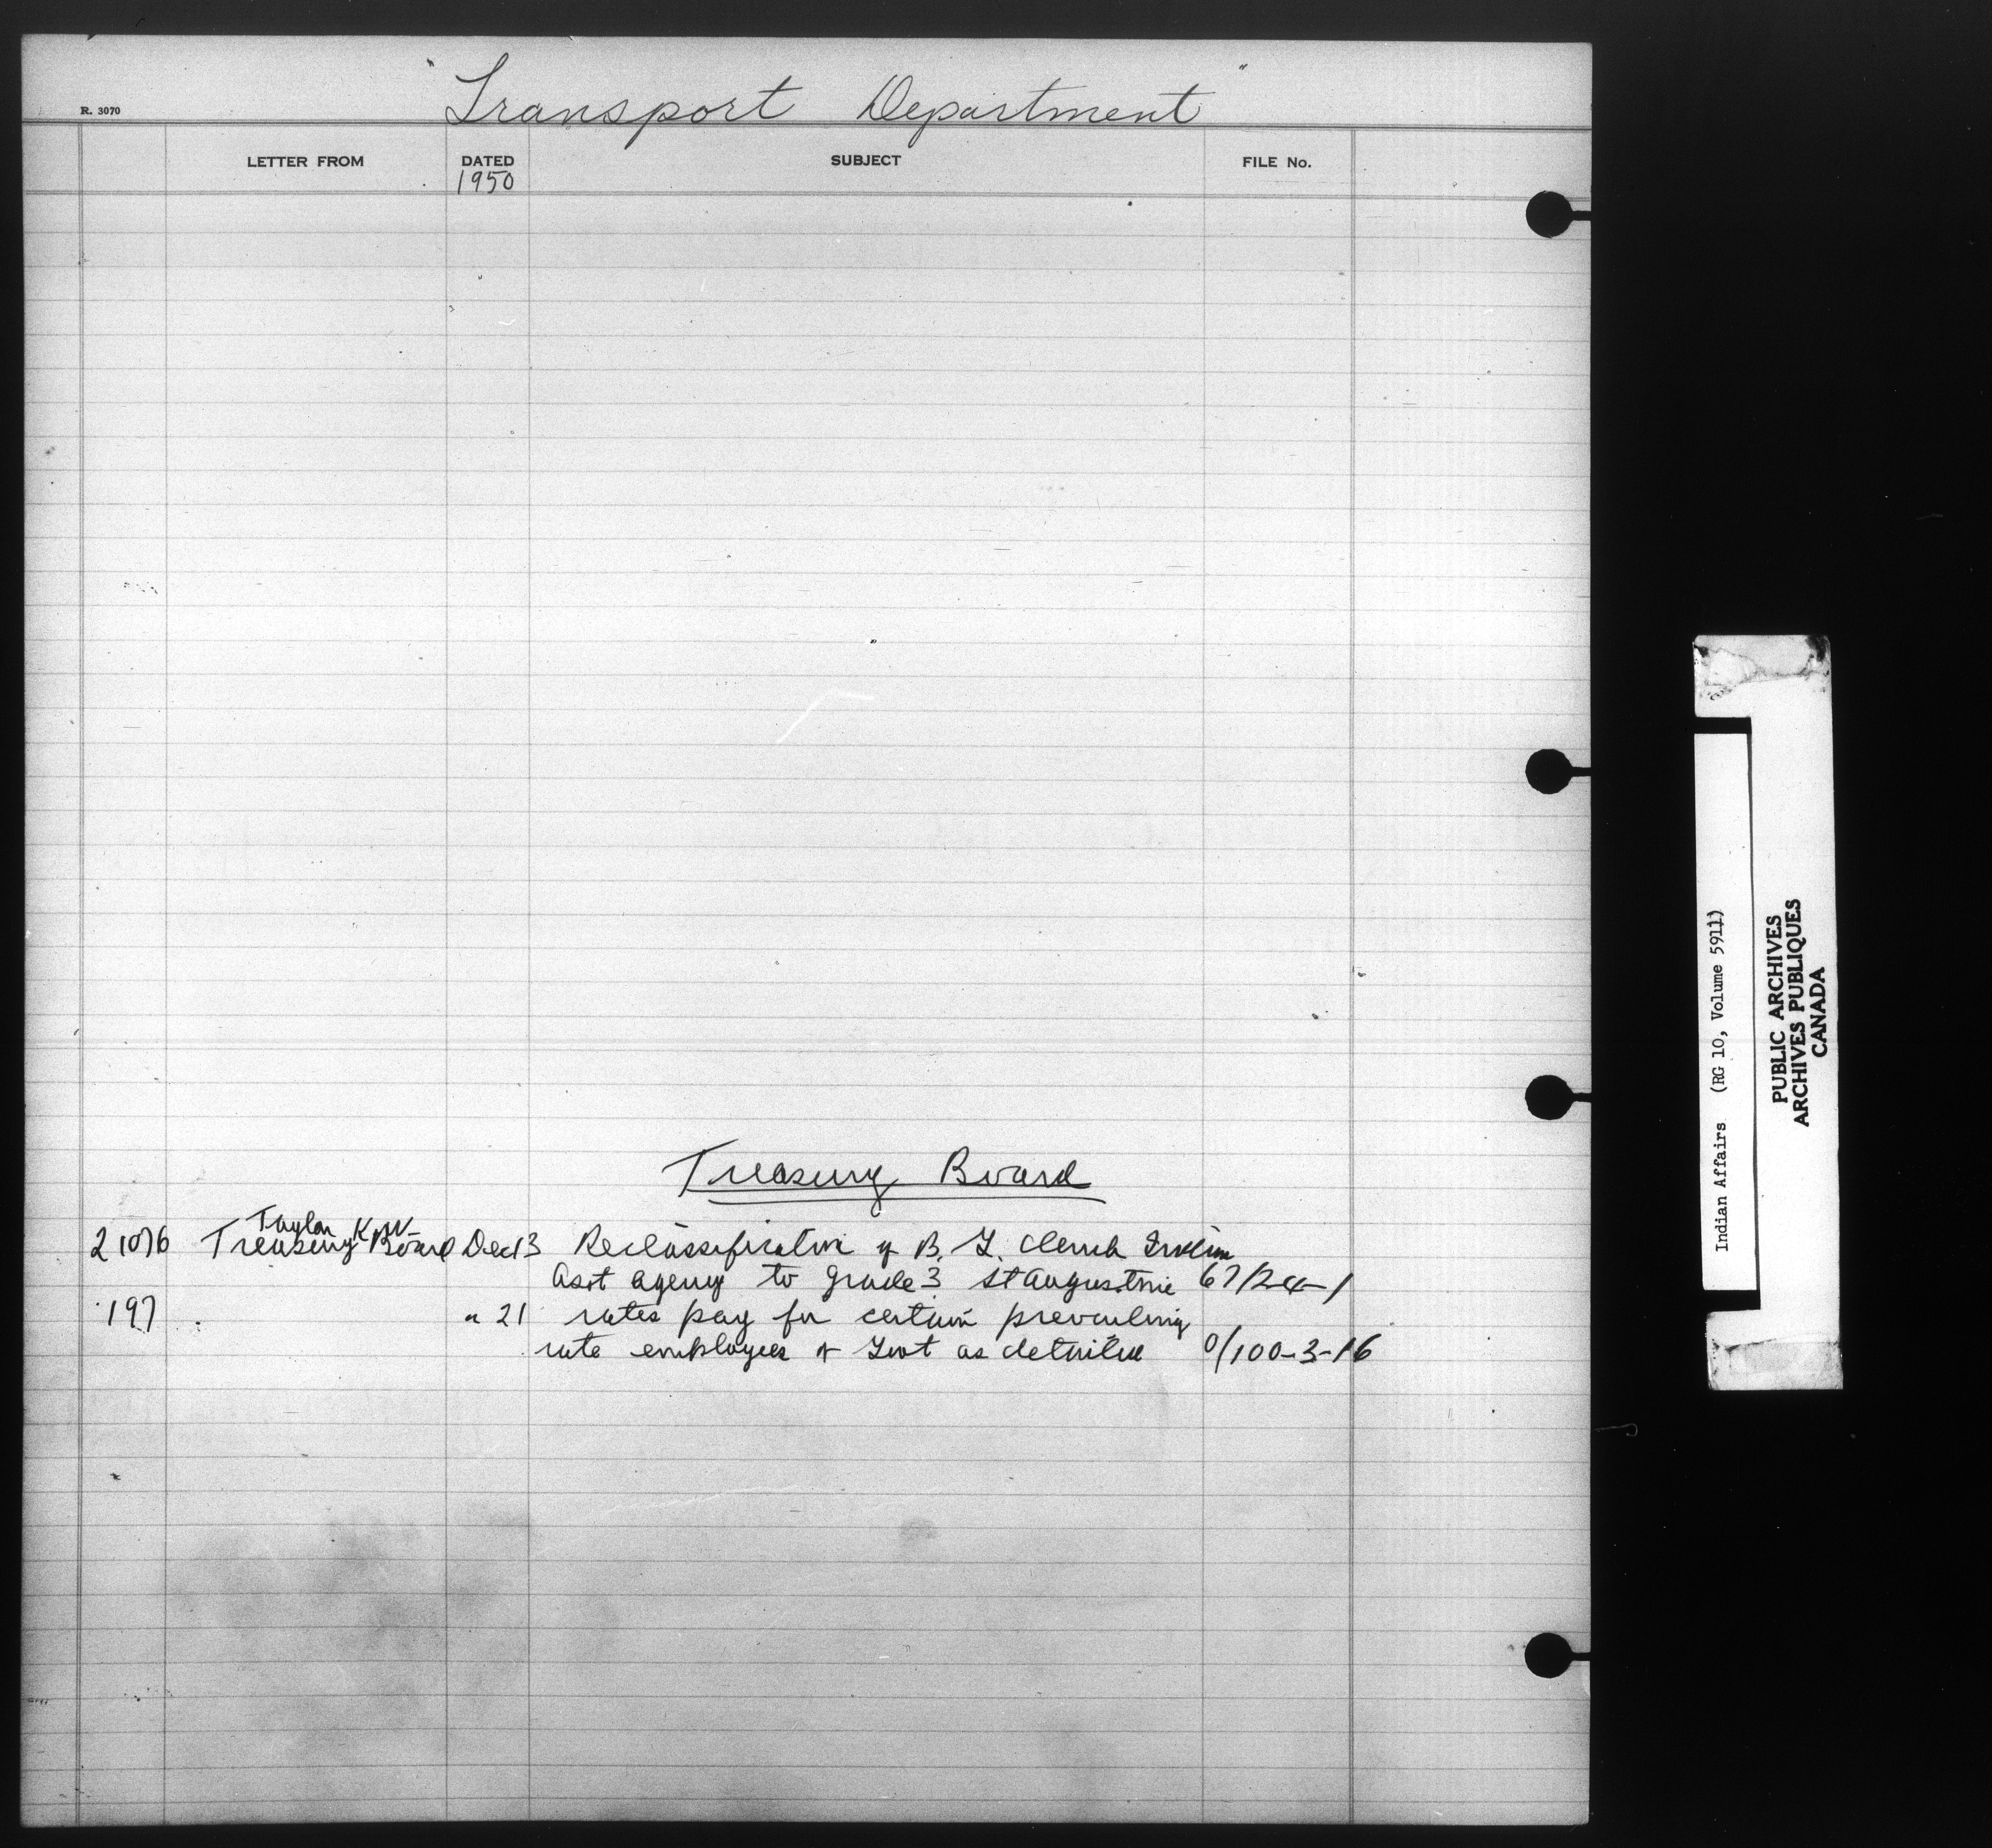 " Transport Department "
R. 3070
LETTER FROM DATED SUBJECT FILE No.
1950
Treasury Board
Taylor K W
21076 Treasury Board Dec 13 Reclassification of B. I. Clerk Indian
Asst agency to grade 3 St Augustine 67/24-1
197 " 21 rates pay for certain prevailing
rate employees of Govt as detailed 0/100-3-16
Indian Affairs (RG 10, Volume 5911)
PUBLIC ARCHIVES
ARCHIVES PUBLIQUES
CANADA